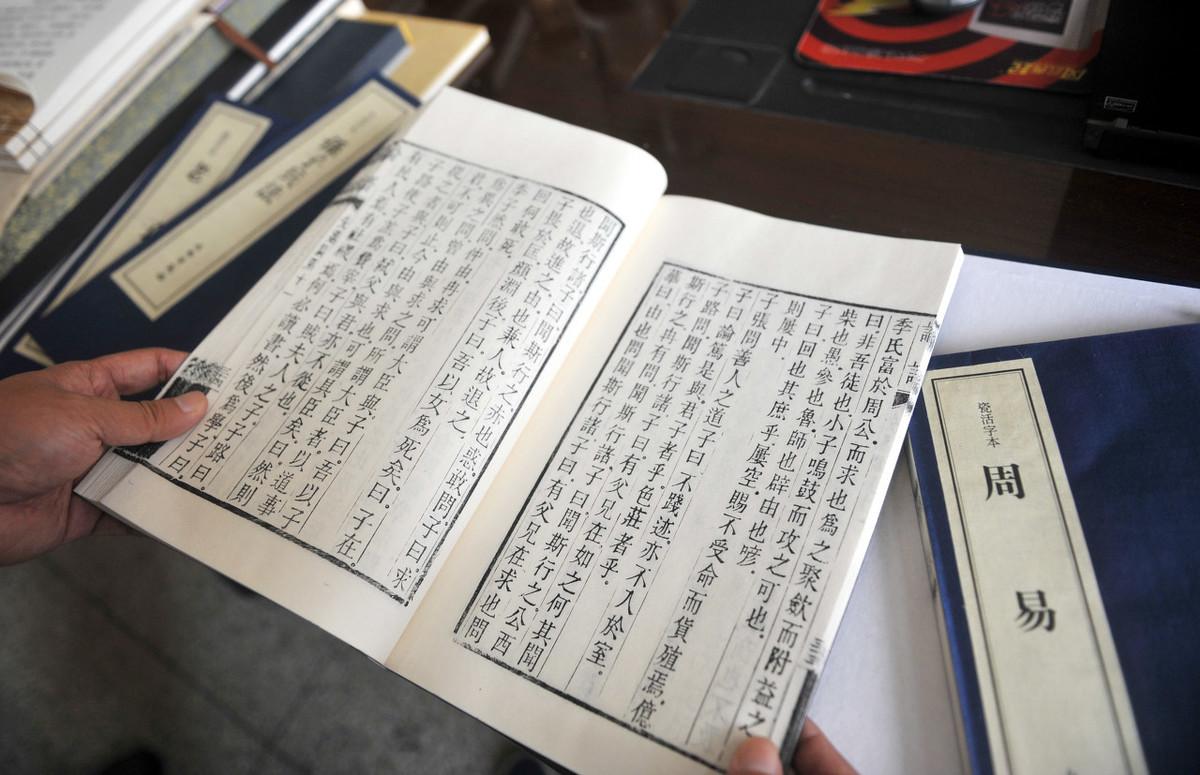 季氏富於周公而求也為之聚斂而附益之
曰非吾徒也小子鳴鼓而攻之可也
柴也愚參也魯師也辟由也喭
子曰回也其庶乎屢空賜不受命而貨殖焉億
則屢中
子張問善人之道子曰不踐迹亦不入於室
子曰論篤是與君子者乎色莊者乎
子路問聞斯行諸子曰有父兄在如之何其聞
斯行之冉有問聞斯行諸子曰聞斯行之公西
華曰由也問聞斯行諸子曰有父兄在求也問
聞斯行諸子曰聞斯行之赤也惑敢問子曰求
也退故進之由也兼人故退之
子畏於匡顏淵後子曰吾以女為死矣曰子在
回何敢死
季子然問仲由冉求可謂大臣與子曰吾以子
為異之問曾由與求之問所謂大臣者以道事
君不可則止今由與求也可謂具臣矣曰然則
從之者與子曰弑父與君亦不從也
子路使子羔為費宰子曰賊夫人之子子路曰
有民人焉有社稷焉何必讀書然後為學子曰
瓷活字本
周易
老